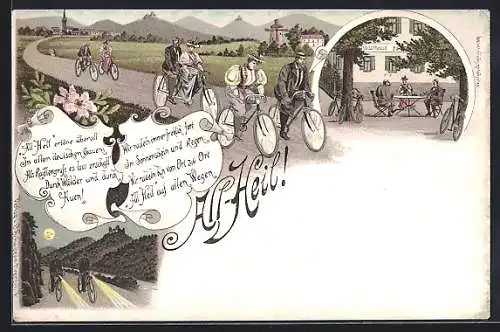 GASTHAUS Z
„All-Heil“ ertöne überall
In allen deutschen Gauen,
Als Radlergruss es laut erschall
Durch Wälder und durch
Auen!
Wir radeln immer
in Sonnenschein und Regen,
Wir radeln hin von Ort zu Ort
„All Heil auf allen Wegen.
All-Heil!